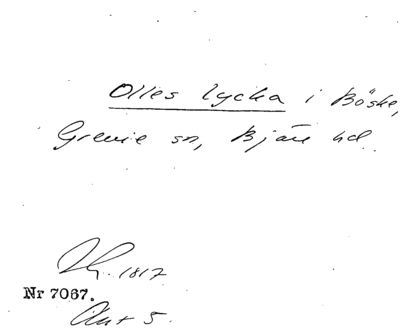 Olles lycka i Böske,
Grevie sn, Bjäre hd
1817
Nr 7067.
Akt 5.